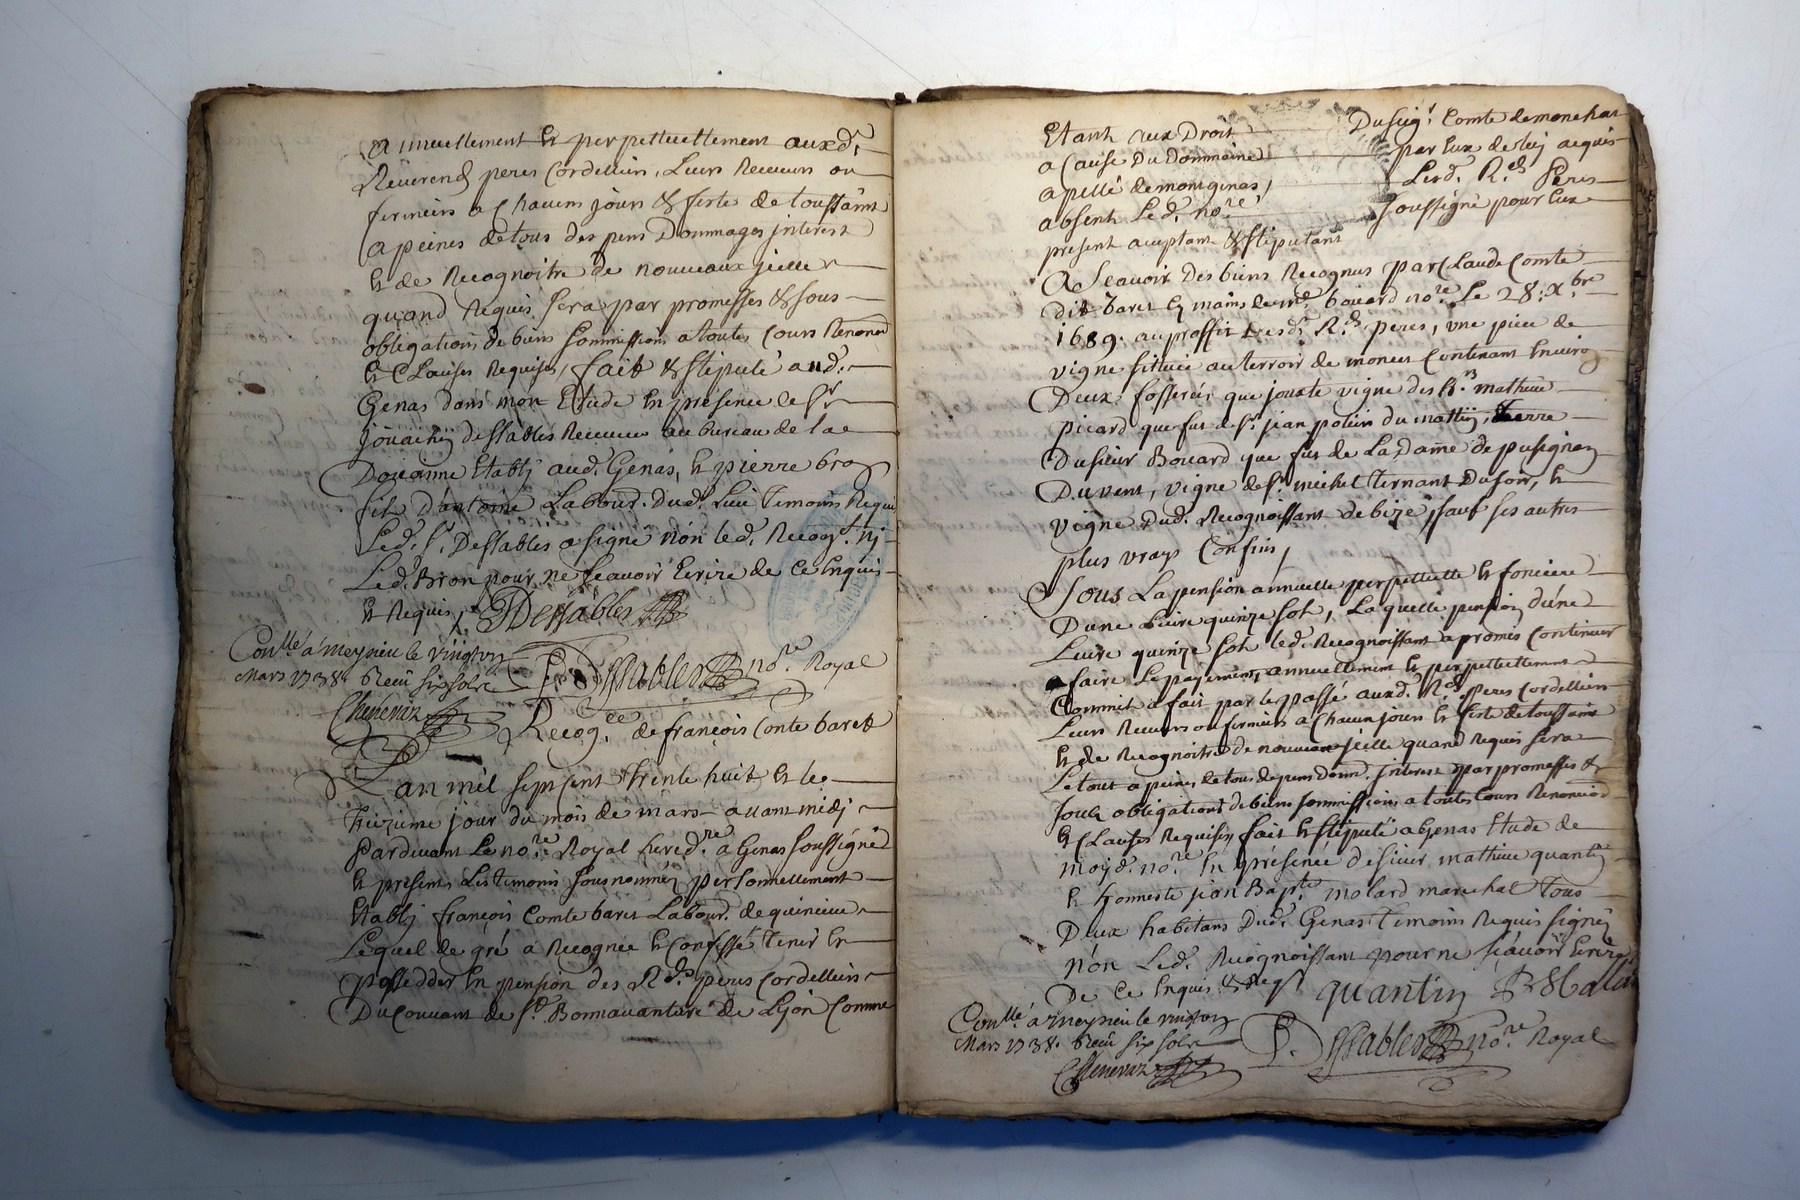 annuellement et perpettuellement auxd.
Reverend peres Cordelliers, Leurs Receveurs ou
fermiers a Chacun jours & feste de toussaint
a peines de tous des pens Dommages jnterest
et de Recognoitre de nouveaux jcelle
quand Requis sera par promesses & sous
obligations de biens sommissions a toutes Cours Renonciõn
et Clauses Requises, fait & stipulé aud.
Genas dans mon Etude en presence de Sr
jouachin dessables Receveur au bureau de la
Doüanne Etablj aud. Genas, et pierre bron
fils d'antoine Labour. dud. Lieu Temoins Requis
Led. Sr. Dessables a signé non led. Recogt. nj
Led. Bron pour ne sçavoir Ecrire de Ce Enquis
et Requis, Dessables
Conllé a meyzieu le vingt
Mars 1738. Reçu six sols
Chenevaz
Dessables nore. Royal
Recog.ce de françois Conte baret
L'an mil sept Cent trente huit et le
treizieme jour du mois de mars avant midj
Pardevant Le nore. Royal hered.re a Genas soussigné
et presents Les temoins sous nommés personnellement
Etablj françois Comte baret Labour. de
Lequel de gré a Recognu et Confessé tenir et
possedder en pension des Rds. peres Cordelliers
Du Couvant de St. Bonnavanture de Lyon Comme
Etant aux Droit Du Seigr. Comte de monchat
a Cause Du Dommaine par Eux de luj acquis
apellé demontgenas, Lesd. Rds. Peres
absent Led. nore. soussigné pour Eux
present aceptant & stipulant
A Scavoir Des biens Recognus par Claude Comte
dit baret Es mains de me. boüard nore. Le 28. Xbre
1689. au proffit desd. Rds. peres, une piece de
vigne sittuée au terroir de Contenant Environ
Deux fosserées que jouxte vigne des hrs. mathieu
picard que fut de Sr. jean du mattin, terre
Dusieur Boüard que fut de La Dame de pusignan
Du vent, vigne de Sr. michel Ternant Du soir, et
vigne Dud. Recognoissant de bize, sauf ses autres
plus vrays Confins,
Sous La pension annuelle perpettuelle et fonciere
D'une Livre quinze sols, La quelle pension d'une
Livre quinze sols led. Recognoissant a promis Continuer
a faire Le payement, annuellement et perpettuellement
Comme il a fait par le passé auxd. Rds. peres Cordelliers
Leurs Receveurs ou fermiers a Chacun jours et feste de toussaint
et de Recognoitre de nouveau jcelle quand Requis sera
Le tout a peines de tous depens domm. jnterest par promesses &
sous obligations de biens sommissions a toutes Cours Renonciõn
et Clauses Requises, fait et stipulé a Genas Etude de
moyd. nore. En présence de sieur mathieu quantin
et honneste jean Bapte. molard marechal Tous
Deux habitans Dud. Genas Temoins Requis signés
non Led. Recognoissant pour ne sçavoir Ecrire
De Ce Enquis & Req
quantin
Conllé a meyzieu le vingt
Mars 1738. Reçu six sols
Chenevaz
Dessables nore. Royal